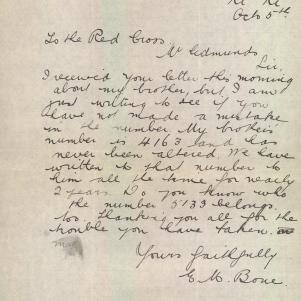 Oct 5th
To the Red Cross.
Mr Edmunds,
Sir,
I received your letter this morning
about my brother, but I am
just writing to see if you
have not made a mistake
in the number. My brother's
number is 4163 and has
never been altered. We have
written to that number to
him all the time for nearly
2 years. Do you know who
the number 5133 belongs.
too. Thanking you all for the
trouble you have taken.
Yours faithfully
E. M. Bone.